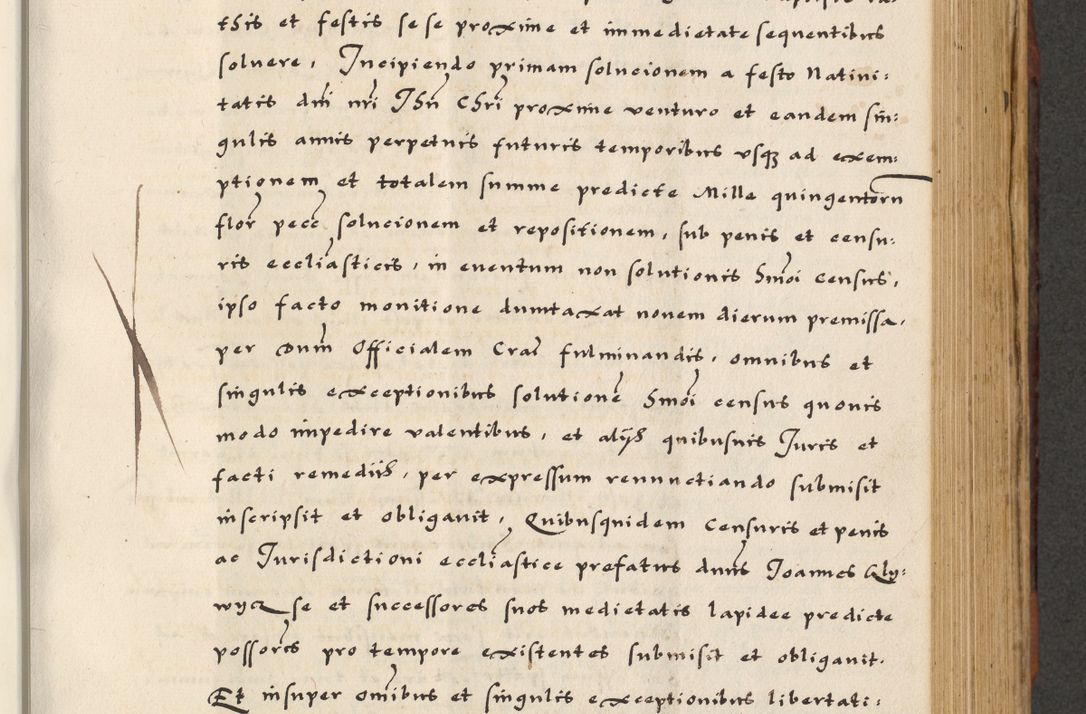 this et festis sese proxime et immedietate sequentibus
soluere, Incipiendo primam solucionem a festo Natiui:
tatis dni nri Jhu Chri proxime venturo et eandem sin:
gulis annis perpetuis futuris temporibus vsq ad exem:
ptionem et totalem summe predicte Mille quingentoru
flor pecc solucionem et repositionem, sub penis et censu:
ris eccliasticis, in euentum non solutionis hmoi census,
ipso facto monitione dumtaxat nouem dierum premissa,
per Dnm Officialem Crac fulminandis, omnibus et
singulis exceptionibus solutione hmoi census quouis
modo impedire valentibus, et alijs quibusuis Juris et
facti remedijs, per expressum renunctiando submisit
inscripsit et obligauit, Quibusquidem Censuris et penis
ac Jurisdictioni eccliastice prefatus dnus Joannes
se et successores suos medietatis lapidee predicte
possores pro tempore existentes submisit et obligauit.
Et insuper omibus et singulis exceptionibus libertati: